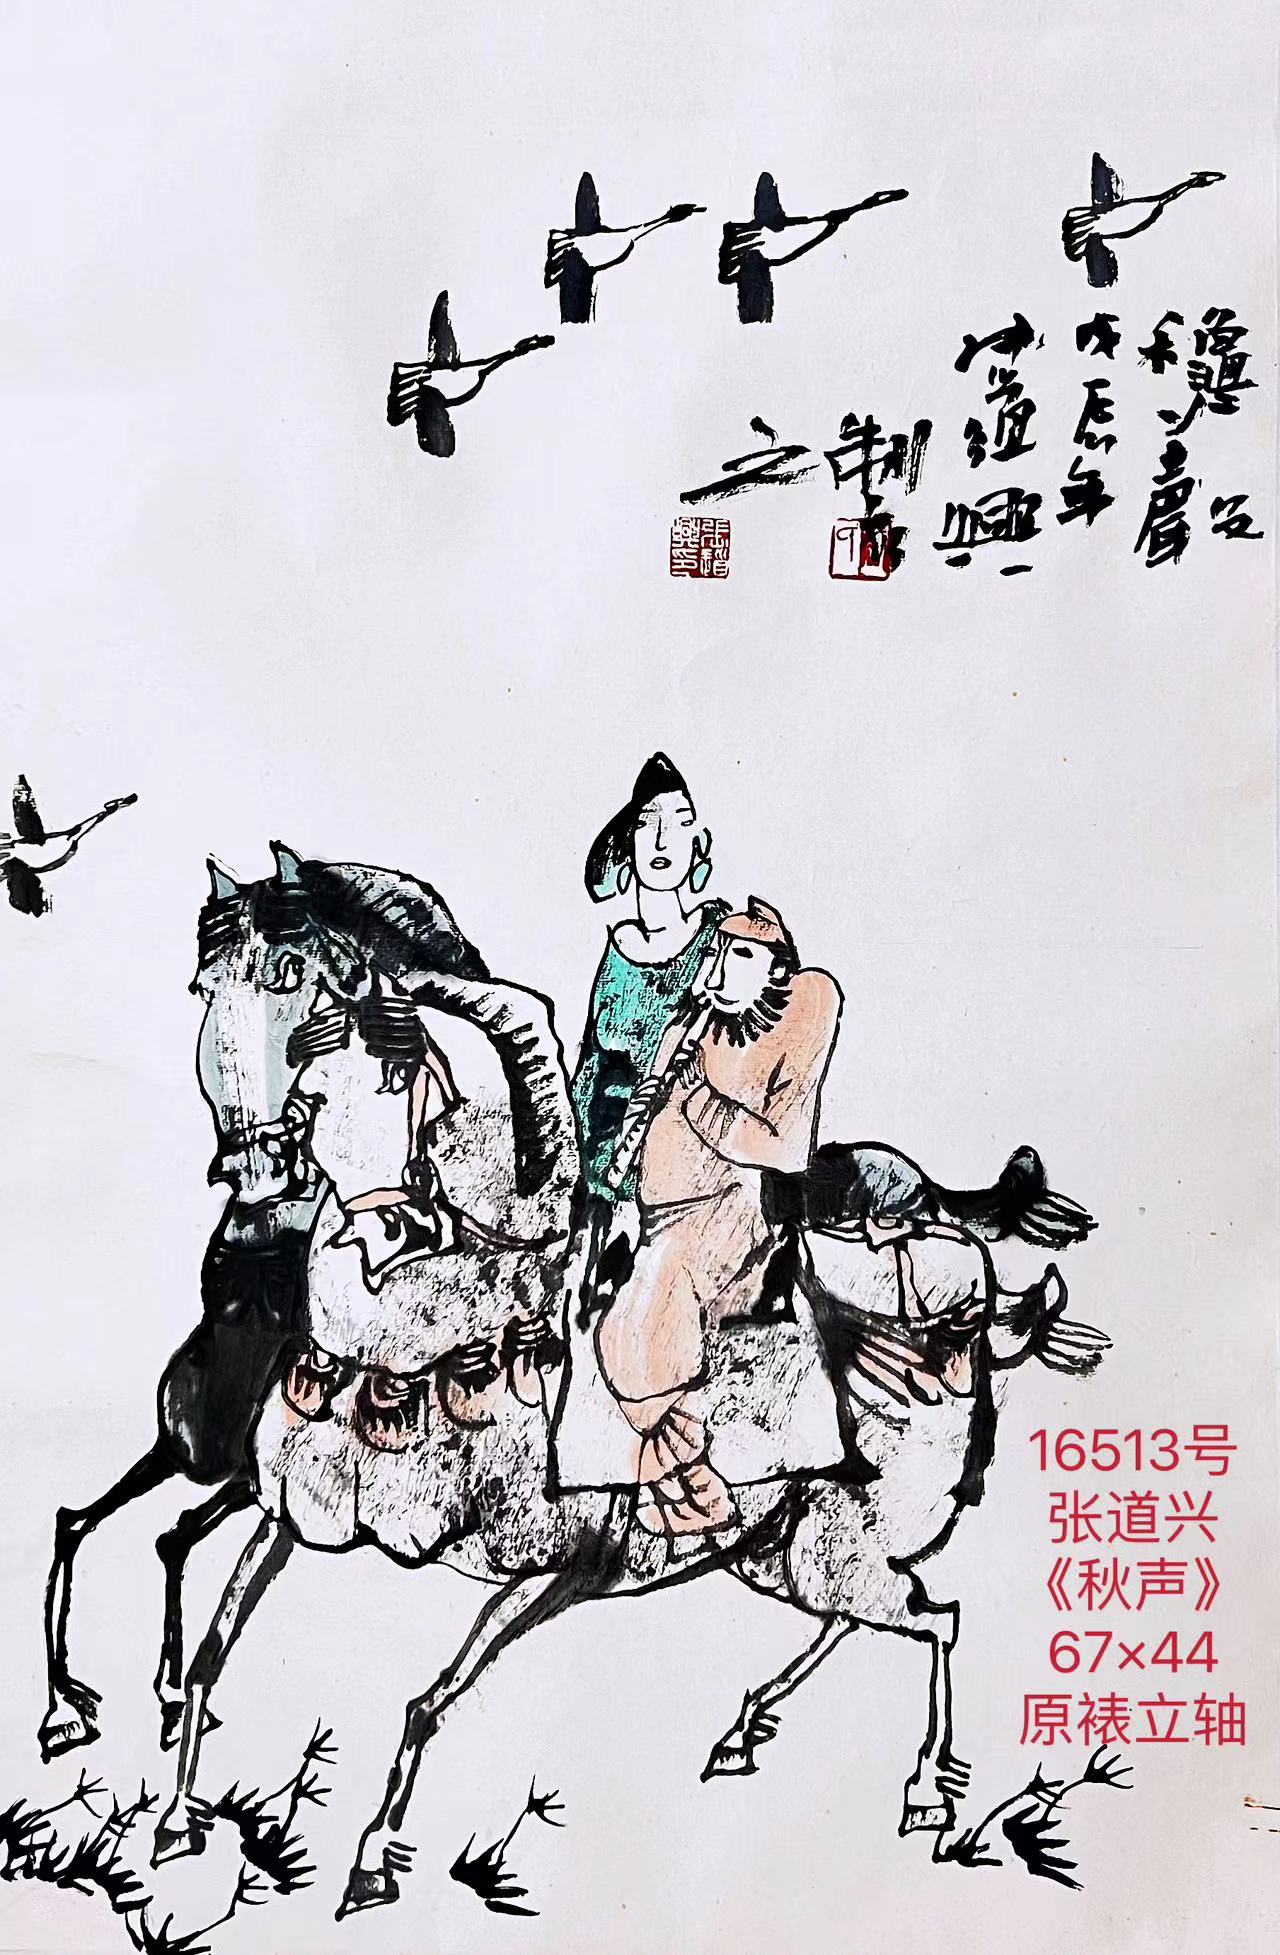 龝聲
戊辰年
道興
制
之
張道
興印
16513号
张道兴
《秋声》
67×44
原裱立轴